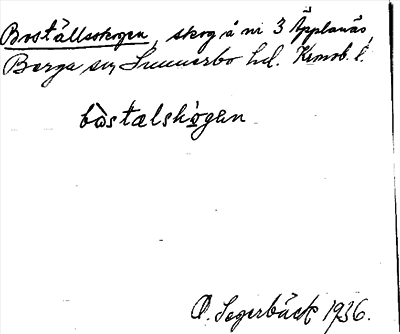 Boställsskogen, skog å nr 3 Äpplanäs,
Berga sn, Sunnerbo hd. Kronob. l.
bòstælskògen
O. Segerbäck 1936.